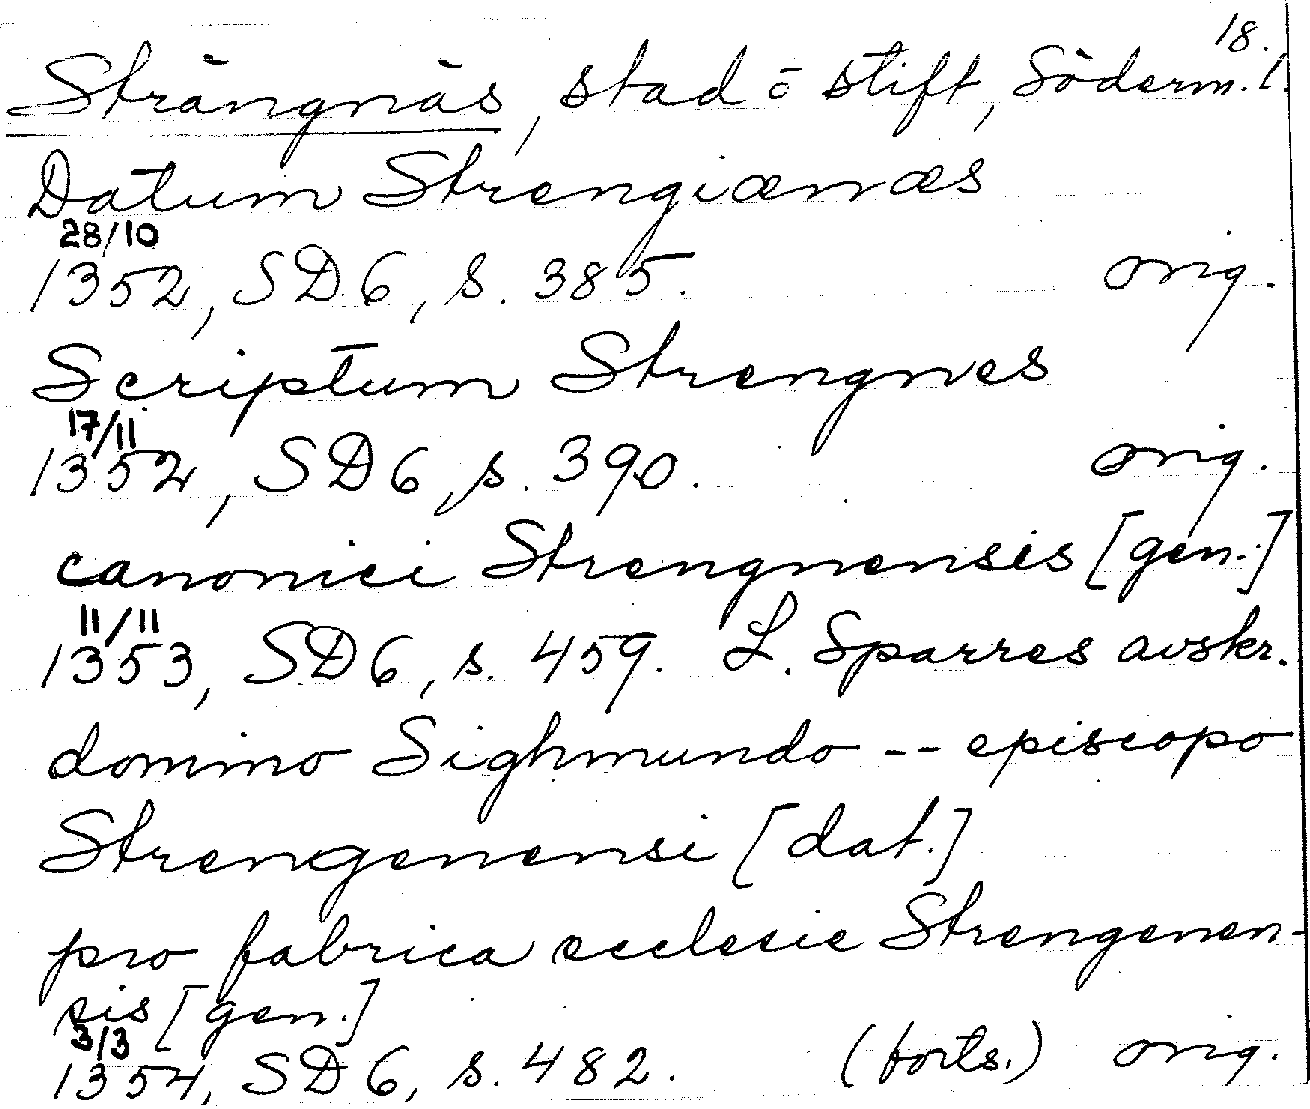 18.
Strängnäs, stad o stift, Söderm. l.
Datum Strengiænæs
28/10
1352, SD 6, s. 385. orig.
Scriptum Strengnes
17/11
1352, SD 6, s. 390. orig.
canonici Strengnensis [gen.]
11/11
1353, SD 6, s. 459. L. Sparres avskr.
domino Sighmundo -- episcopo
Strengenensi [dat.]
pro fabrica ecclesie Strengenen-
sis [gen.]
3/3
1354, SD 6, s. 482. (forts.) orig.